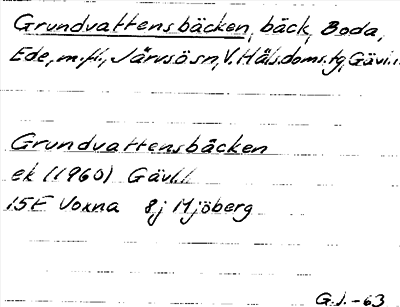 Grundvattensbäcken, bäck, Boda,
Ede, m.fl., Järvsö sn, V. Häls.doms.tg, Gävl.l.
Grundvattensbäcken
ek (1960) Gävl.l.
15F Voxna 8j Mjöberg
G.J.-63